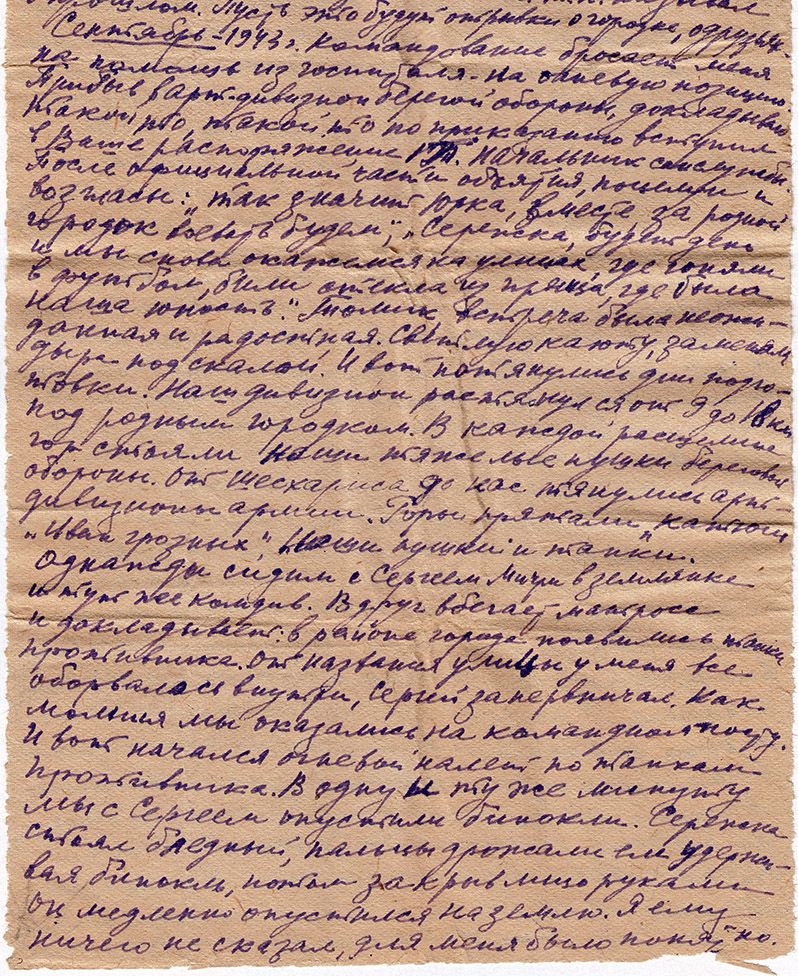 прошлом. Пусть это будут отрывки о городке, о друзьях.
Сентябрь-1943 г. Командование бросает меня
на помощь из госпиталя-на огневую позицию.
Прибыв в арт-дивизион береговой обороны, докладываю
такой то, такой то по приказанию вступил
в Ваше распоряжение Начальник
После официальной части объятия, поцелуи и
возгласы: „так значит Юрка, вместе за родной
городок воевать будем", „Сережка, будет день
и мы снова окажемся на улицах, где гоняли
в футбол, били стекла из праща, где была
наша юность." Томик, встреча была неожи-
данная и радостная. Светлую каюту, заменяла
дыра под скалой. И вот потянулись дни подго-
товки. Наш дивизион растянулся от 9 до 18 км
под родным городком. В каждой расщелине
гор стояли наши тяжелые пушки береговой
обороны. От Шесхариса до нас тянулись арт-
дивизионы армии. Горы прятали „катюш
„Иван грозных", наши пушки и танки.
Однажды сидим с Сергеем Мичи в землянке
и тут же комдив. Вдруг вбегает матросс
и докладывает: в районе города появились танки
противника. От названия улицы у меня все
оборвалась внутри, Сергей занервничал. Как
молния мы оказались на командном посту.
И вот начался огневой налет по танкам
противника. В одну и ту же минуту
мы с Сергеем опустили бинокли. Сережка
стоял бледный, пальцы дрожали еле удержи-
вая бинокль, потом закрыв лицо руками
он медленно опустился на землю. Я ему
ничего не сказал, для меня было понятно.